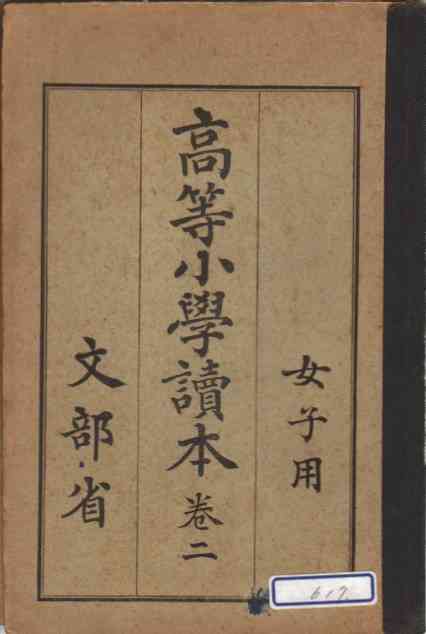 女子用
高等小學讀本 卷二
文部省
617